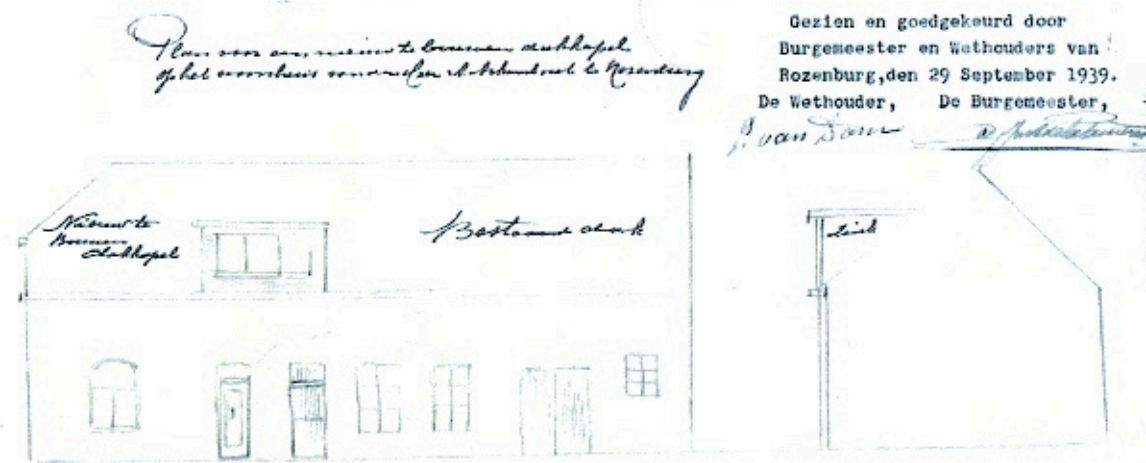 Plan voor een nieuw te bouwen dakkapel
op het voorhuis van den Heer te Rozenburg
Gezien en goedgekeurd door
Burgemeester en Wethouders van
Rozenburg,den 29 September 1939.
De Wethouder, De Burgemeester,
van Dam
Nieuw te
Bouwen
dakkapel
Bestaand dak
Zink